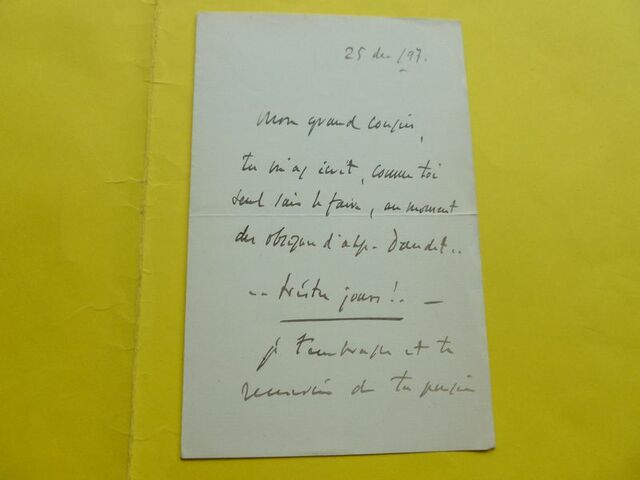 25 dec /97.
Mon grand cousin,
tu m'as écrit, comme toi
seul sais le faire, au moment
des obsèques d'Alp. Daudet..
-- tristes jours!. —
je t'embrasse et te
remercie de ta pensée